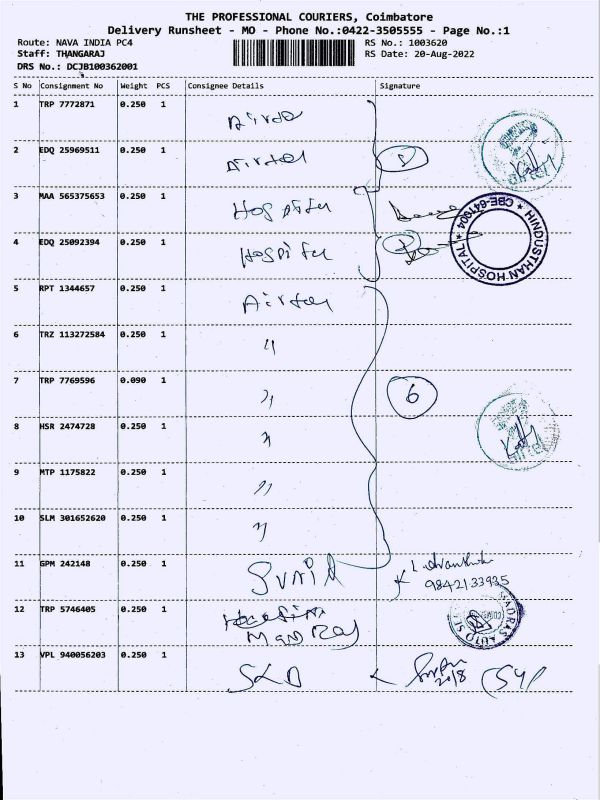 THE PROFESSIONAL COURIERS, Coimbatore
Delivery Runsheet - MO - Phone No.:0422-3505555 - Page No.:1
Route: NAVA INDIA PC4
RS No.: 1003620
Staff: THANGARAJ
RS Date: 20-Aug-2022
DRS No.: DCJB100362001
S No Consignment No Weight PCS Consignee Details Signature
1 TRP 7772871 0.250 1 Airtel
2 EDQ 25969511 0.250 1 Airtel
3 MAA 565375653 0.250 1 Hospital
4 EDQ 25092394 0.250 1 Hospital 2
HINDUSTHAN HOSPITAL * CBE-641004 *
5 RPT 1344657 0.250 1 Airtel
6 TRZ 113272584 0.250 1 "
7 TRP 7769596 0.090 1 " 6
8 HSR 2474728 0.250 1 "
9 MTP 1175822 0.250 1 "
10 SLM 301652620 0.250 1 "
11 GPM 242148 0.250 1 Sunil
9842133935
12 TRP 5746405 0.250 1
MADRAS AUTO
13 VPL 940056203 0.250 1